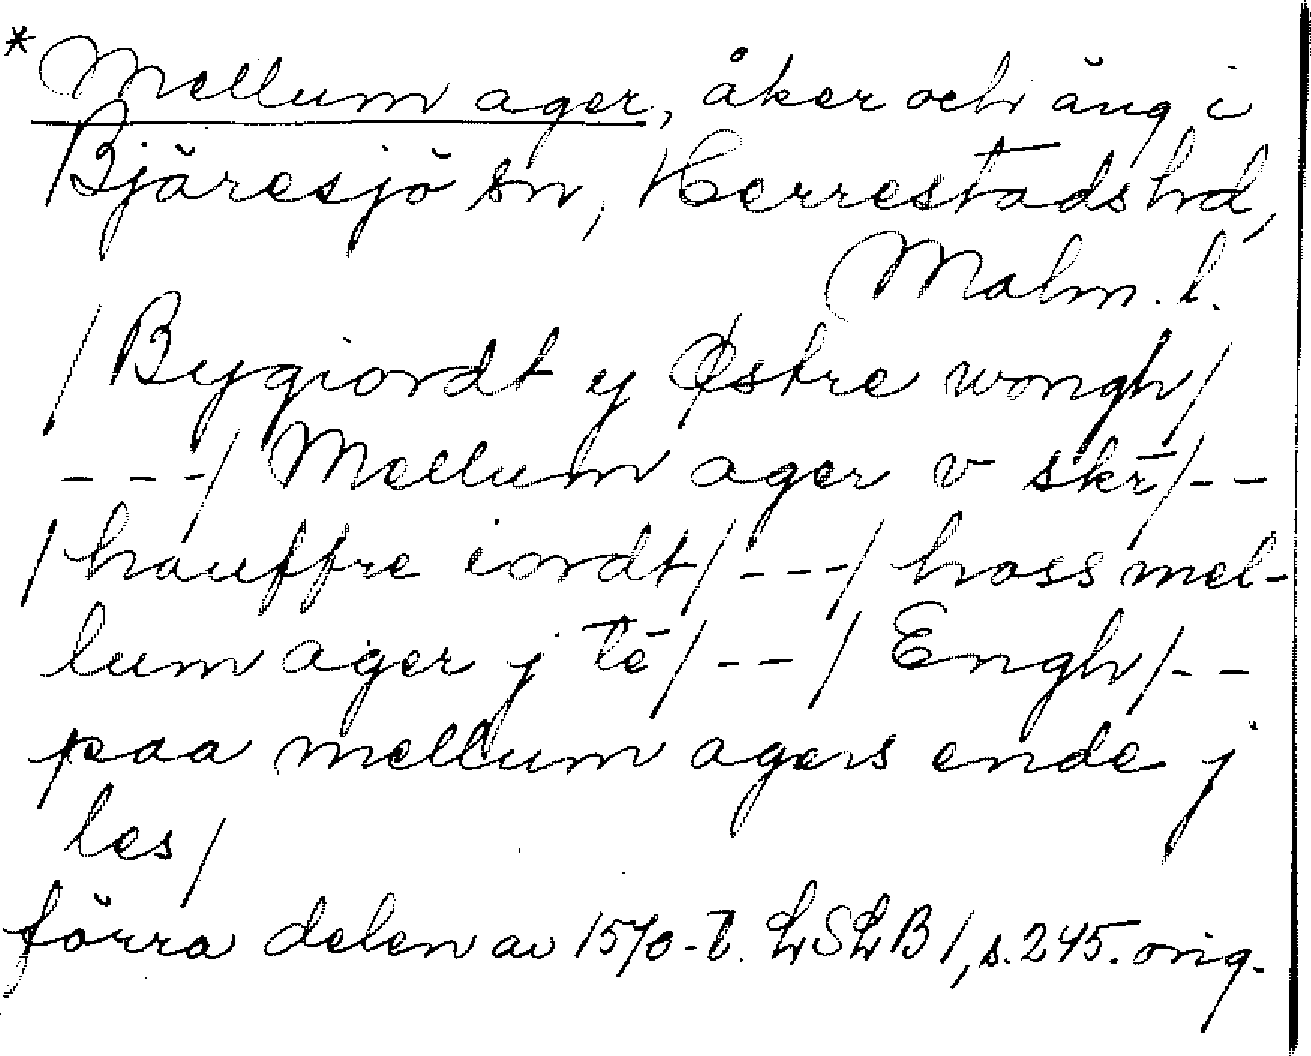 *Mellum ager, åker och äng i
Bjäresjö sn, Herrestads hd,
Malm. l.
/Bygiordt y Østre wongh/
---/Mellum ager v skr̄/--
/hauffre iordt/---/hoss mel-
lum ager j tē/--/Engh/--
paa mellum agers ende j
les/
förra delen av 1570-t. LSLB 1, s. 245. orig.